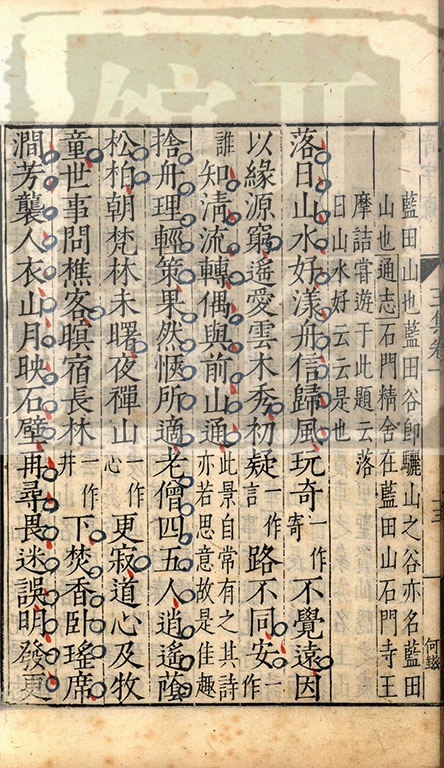 藍田山也藍田谷即驪山之谷亦名藍田
山也通志石門精舍在藍田山石門寺王
摩詰嘗遊于此題云落
日山水好云云是也
落日山水好漾舟信歸風玩奇一作寄不覺遠因
以緣源窮遙愛雲木秀初疑一作言路不同安作
誰知清流轉偶與前山通此景自常有之其詩亦若思意故是佳趣
捨舟理輕策果然愜所適老僧四五人逍遙蔭
松柏朝梵林未曙夜禪山一作心更寂道心及牧
童世事問樵客暝宿長林一作井下焚香臥瑤席
澗芳襲人衣山月映石壁再尋畏迷誤明發更